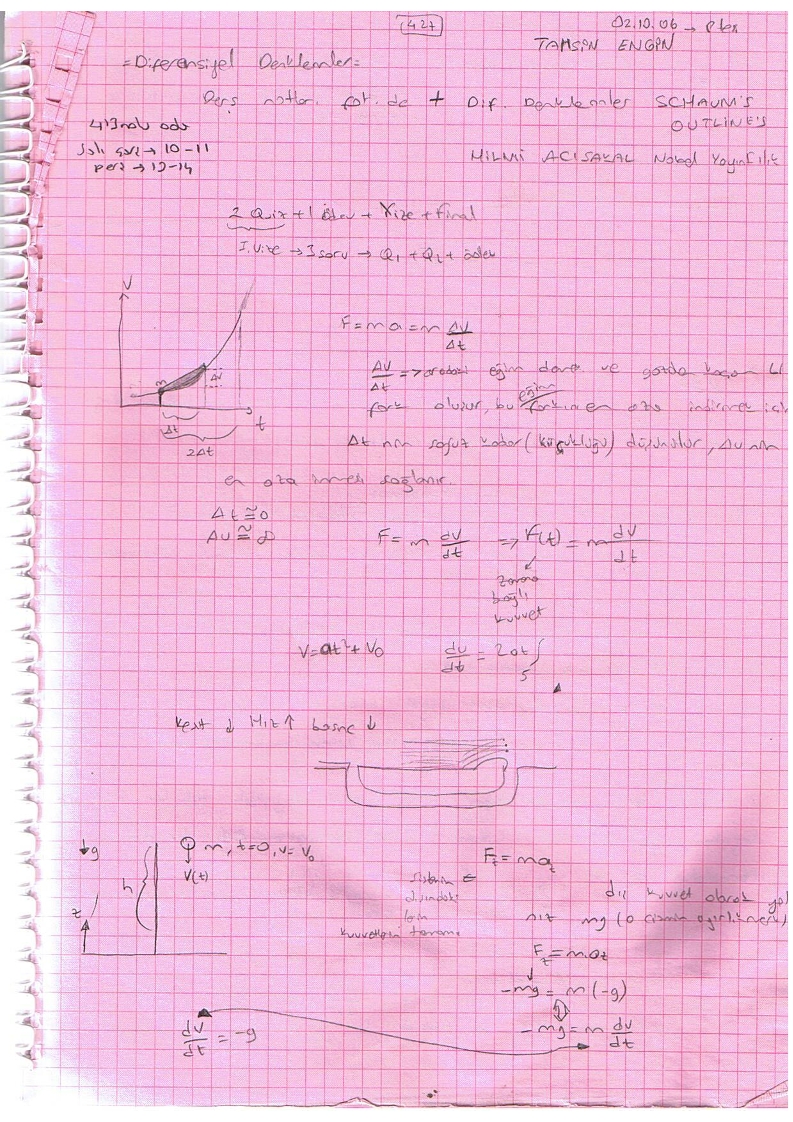 (4.27)
02.10.06 → Ptes
TAHSİN ENGİN
= Diferensiyel Denklemler =
Ders notları fot. da + Dif. Denklemler SCHAUM'S
OUTLINE'S
413 nolu oda
Salı → 10-11
perş → 13-14
HİLMİ ACISAKAL Nobel Yayıncılık
2 Quiz + 1 ödev + Vize + Final
I. Vize → 3 soru → Q1 + Q2 + ödev
V
F = m a = m ΔV/Δt
ΔV/Δt => aradaki eğim ve gözden kaçan
m
ΔV
fark oluşur, bu eğim en aza indirmek
Δt
t
Δt nin sıfır kadar (küçüklüğü) düşünülür, ΔV nin
2Δt
en aza inmesi sağlanır.
Δt ≅ 0
ΔV ≅
F = m dV/dt => F(t) = m dV/dt
zamana
bağlı
kuvvet
V = at² + V0
dV/dt = 2at
Kesit ↓ Hız ↑ basınç ↓
g
m, t=0, v=V0
Fz = maz
V(t)
h
z
Sistemin
dışındaki
kuvvetlerin toplamı
dış kuvvet olarak
mg (o cismin ağırlığı)
Fz = m.az
-mg = m(-g)
dV/dt = -g
-mg = m dV/dt